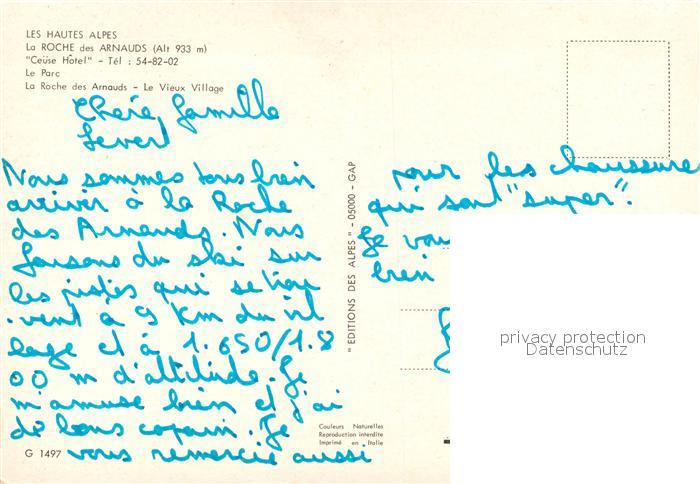 LES HAUTES ALPES
La ROCHE des ARNAUDS (Alt 933 m)
"Ceüse Hôtel" - Tél : 54-82-02
Le Parc
La Roche des Arnauds - Le Vieux Village
Chère famille
Nous sommes tous bien
arriver à la Roche
des Arnauds. Nous
faisons du ski sur
les pistes qui se trou
vent à 9 Km du vil
lage et à 1.650/1.8
00 m d'altitude. Je
m'amuse bien et j'ai
de bons copain. Je
vous remercie aussi
G 1497
"EDITIONS DES ALPES" - 05000 - GAP
Couleurs Naturelles
Reproduction interdite
Imprimé en Italie
pour les chaussure
qui sont "super".
Je vou
bien
privacy protection
Datenschutz